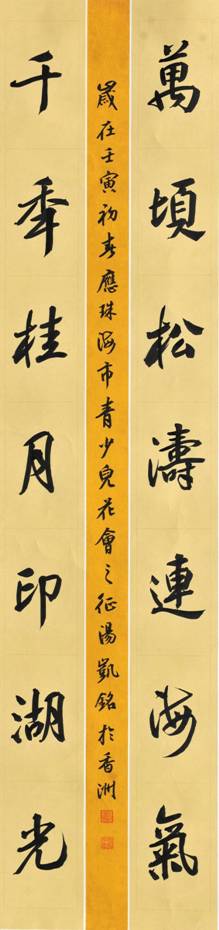 萬頃松濤連海氣
歲在壬寅初春應珠海市青少兒花會之征湯凱銘於香洲
千年桂月印湖光